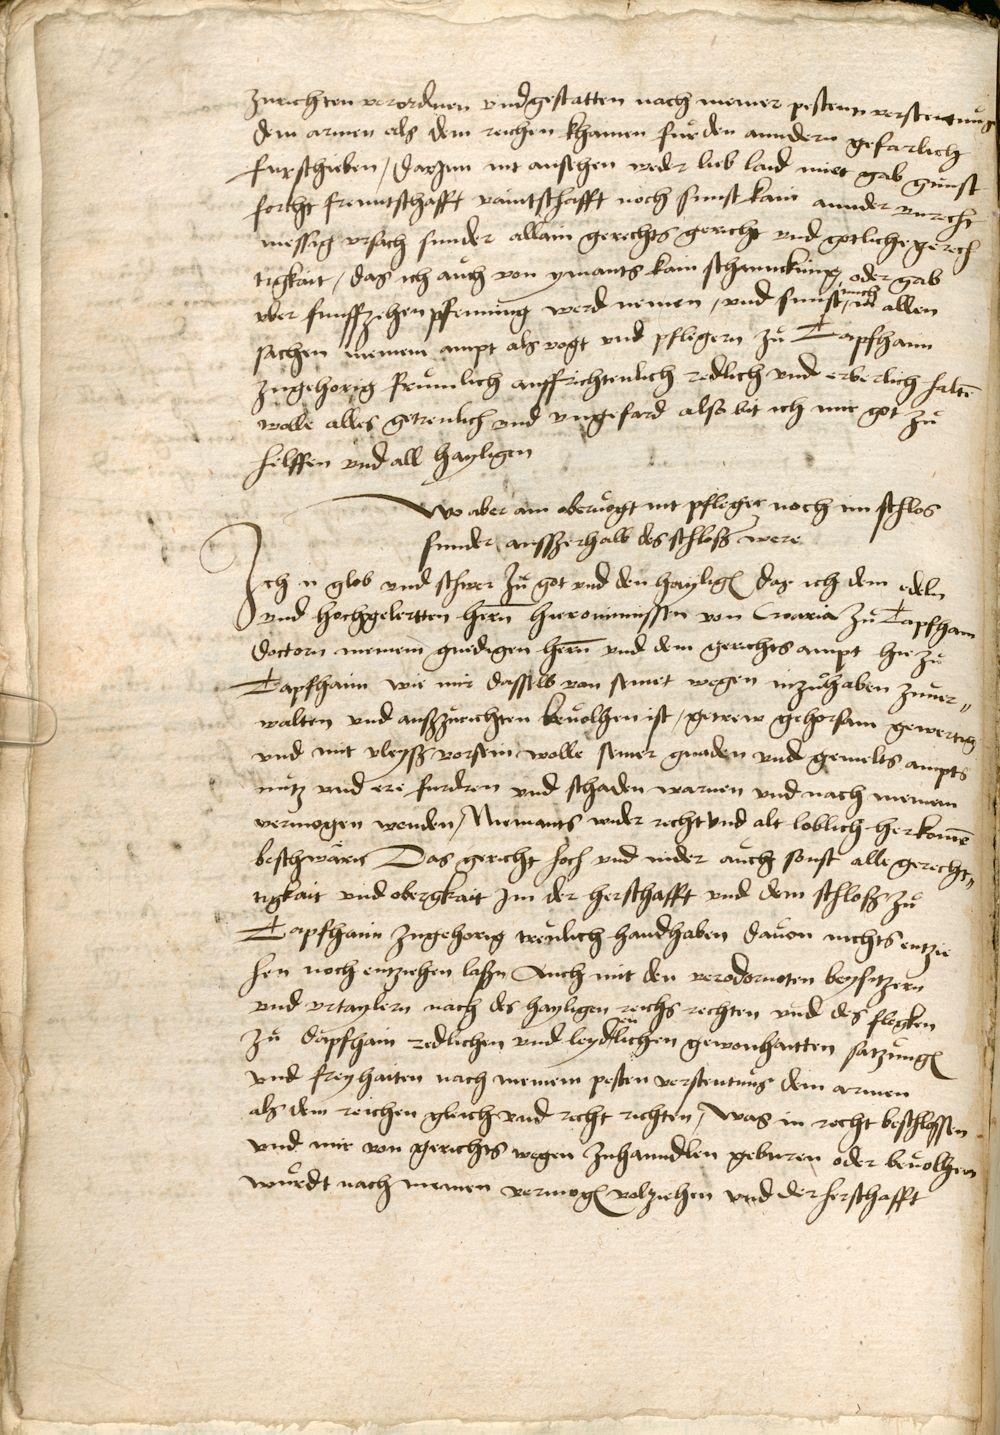 zurichten verordnen und gestatten nach meiner pesten verstentnus
dem armen als dem reichen khainen fur den anndern gefarlich
furschieben / darJnn nit ansehen weder lieb laid miet gab gunst
forcht freuntschafft veintschafft noch sunst kain annder unrecht
messig ursach sunder allain gerechts gericht und gotliche gerech
tigkait / das ich auch von ymants kain schannckung oder gab
uber funffzehen pfenning werd nemen / und sunst / mich in allen
sachen meinem ampt als vogt und pflegern zu Tapfhaim
zugehorig frumlich auffrichtenlich redlich und erberlich halten
wolle alles getreulich und ungefard also bit ich mir got zu
helffen und all hayligen
Wo aber ain obervogt nit pfleger noch im schlos
sunder ausserhalb des schloß were
Ich n glob und schwer zu got und den hayligen das ich dem edeln
und hochgelertten herrn hieronimussen von Croaria zu Tapfhaim
doctorn meinem gnedigen herrn und dem gerichts ampt hie zu
Tapfhaim wie mir dasselb von seinet wegen inzuhaben zuver„
walten und auszurichten bevolhen ist / getrew gehorsam gewertig
und mit vleyß vorsein wolle seiner gnaden und gemelts ampts
nutz und ere furdren und schaden warnen und nach meinem
vermogen wenden / Niemants wider recht und alt loblich herkomen
beschwären Das gericht hoch und nider auch sonst alle gerecht„
tigkait und obergkait Jm der herschafft und dem schloß zu
Tapfhaim zugehorig treulich handhaben davon nichts entzie
hen noch entziehen lassen Auch mit den verodorneten beysitzern
und urtaylern nach des hayligen reichs rechten und des flecken
zu dapfhaim redlichen und leydenlichen gewonhaitten satzungen
und freyhaiten nach meinem pesten verstentnus dem armen
als dem reichen gleich und recht richten / Was in recht beschlossen
und mir von gerichts wegen zuhanndlen geburen oder bevolhen
wurdt nach meinen vermogen volziehen und der herschafft